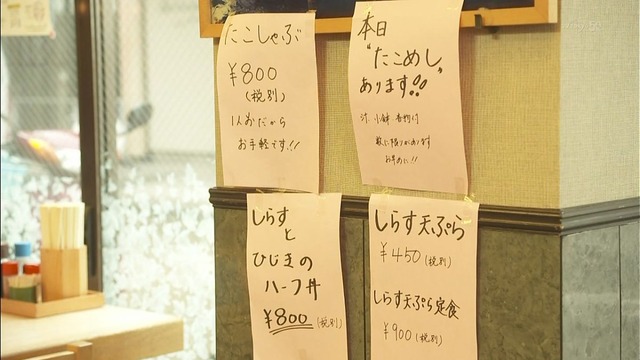 たこしゃぶ
¥800
(税別)
1人前だから
お手軽です!!
本日
"たこめし"
あります!!
汁 小鉢 香物付
数に限りがあります
お早めに!!
しらす
と
ひじきの
ハーフ丼
¥800(税別)
しらす天ぷら
¥450(税別)
しらす天ぷら定食
¥900(税別)